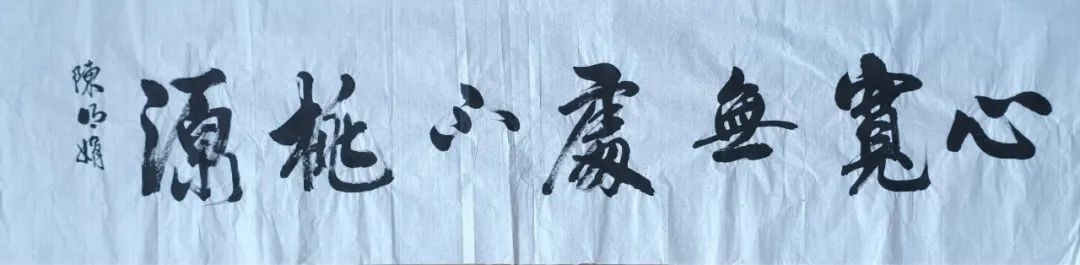 心寬無處不桃源
陳明娟